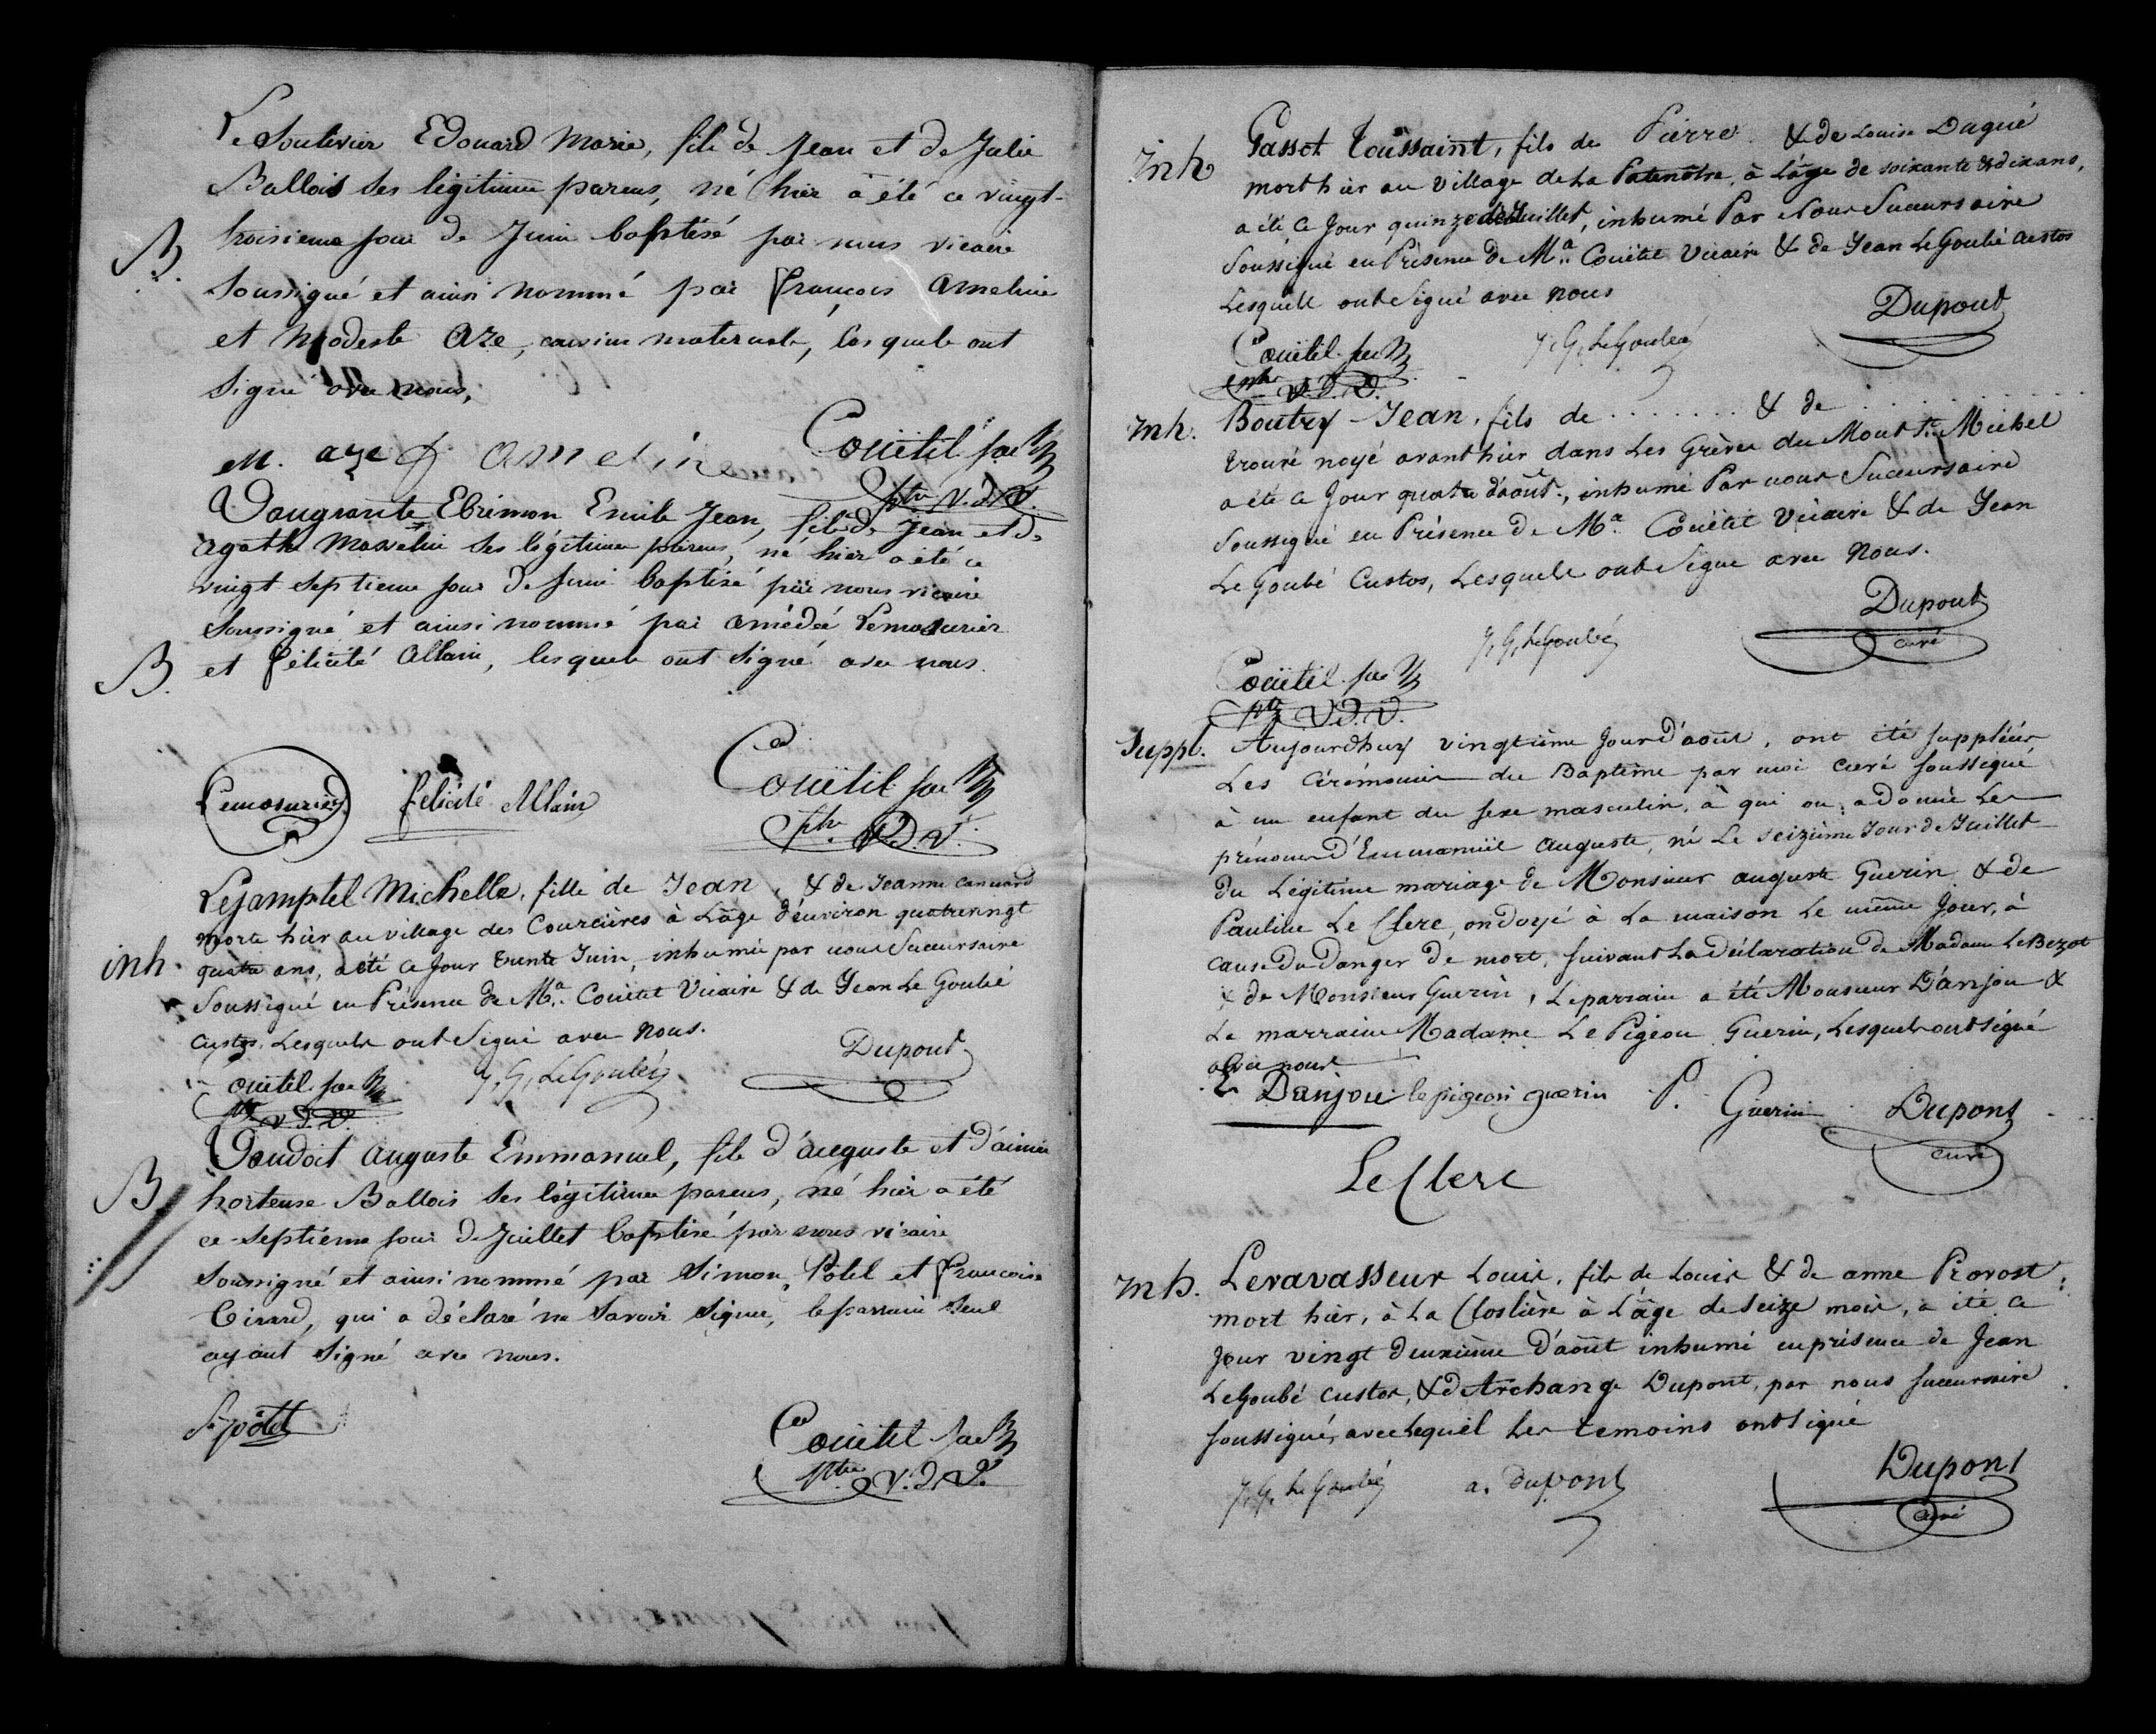 Le Soutivier Edouard Marie, fils de Jean et de Julie
Ballois ses légitimes parens, né hier a été ce vingt-
troisieme jour de Juin baptisé par nous vicaire
B.
soussigné et ainsi nommé par François Ameline
et Modeste Aze, cousins maternels, lesquels ont
signé avec nous,
M. aze f ameline Coüétil
ptre V.D.V.
Vaugrante Ebrémon Emile Jean, fils de Jean et de
agathe Masselin ses légitimes parens, né hier a été ce
vingt septieme jour de Juin baptisé par nous vicaire
soussigné et ainsi nommé par amédée Lemosurier
B.
et félicité Allain, lesquels ont signé avec nous.
Lemosurier félicité Allain Coüétil
ptre V.D.V.
Lejamptel Michelle, fille de Jean, & de Jeanne Canuard
morte hier au village des Courcières à L'âge d'environ quatrevingt
inh.
quatre ans, a été ce Jour trente Juin, inhumée par nous Succursaire
Soussigné en Présence de Mr. Couëtil Vicaire & de Jean Le Goubé
Custos, Lesquels ont Signé avec Nous.
Coüétil J. G. LeGoubé Dupont
ptre V.D.V.
Vaudoit auguste Emmanuel, fils d'auguste et d'aimée
B.
hortense Ballois ses légitimes parens, né hier a été
ce septiéme jour de Juillet baptisé par nous vicaire
soussigné et ainsi nommé par Simon Potel et françoise
Girard, qui a déclaré ne savoir signer, le parrain seul
ayant signé avec nous.
S. potel
Coüétil
ptre V.D.V.
inh
Gasset Toussaint, fils de Pierre & de Louise Dagué
mort hier au village de La Patenôtre, à L'âge de soixante & dix ans,
a été ce Jour quinze de Juillet, inhumé Par Nous Succursaire
Soussigné en Présence de Mr. Couëtil Vicaire & de Jean LeGoubé Custos
Lesquels ont Signé avec Nous
Coüétil J. G. LeGoubé Dupont
ptre V.D.V.
inh.
Boutry Jean, fils de ....... & de ...........
trouvé noyé avant hier dans Les Grèves du Mont St. Michel
a été ce Jour quatre d'août, inhumé Par nous Succursaire
Soussigné en Présence de Mr. Couëtil Vicaire & de Jean
Le Goubé Custos, Lesquels ont Signé avec Nous.
J. G. LeGoubé Dupont
curé
Coüétil
ptre V.D.V.
Suppl.
Aujourdhuy vingtième Jour d'août, ont été suppléées
Les Cérémonies du Baptême par moi curé soussigné
à un enfant du sexe masculin, à qui on a donné Les
prénoms d'Emmanüel auguste, né Le seizième Jour de Juillet
du Légitime mariage de Monsieur auguste Guerin & de
Pauline Le Clerc, ondoyé à La maison Le même Jour, à
cause du danger de mort, suivant La Déclaration de Madame LeBezot
& de Monsieur Guerin, Le parrain a été Monsieur D'anjou &
La marraine Madame Le Pigeon Guerin, Lesquels ont signé
avec nous
Danjou le pigeon guerin P. Guerin Dupont
curé
Le Clerc
inh.
Levavasseur Louis, fils de Louis & de anne Provost
mort hier, à La Closlière à L'âge de seize mois, a été ce
Jour vingt deuxième d'août inhumé en présence de Jean
LeGoubé custos, & d'Archange Dupont, par nous succursaire
soussigné, avec lequel Les temoins ont signé
J. G. Le Goubé a. dupont Dupont
curé